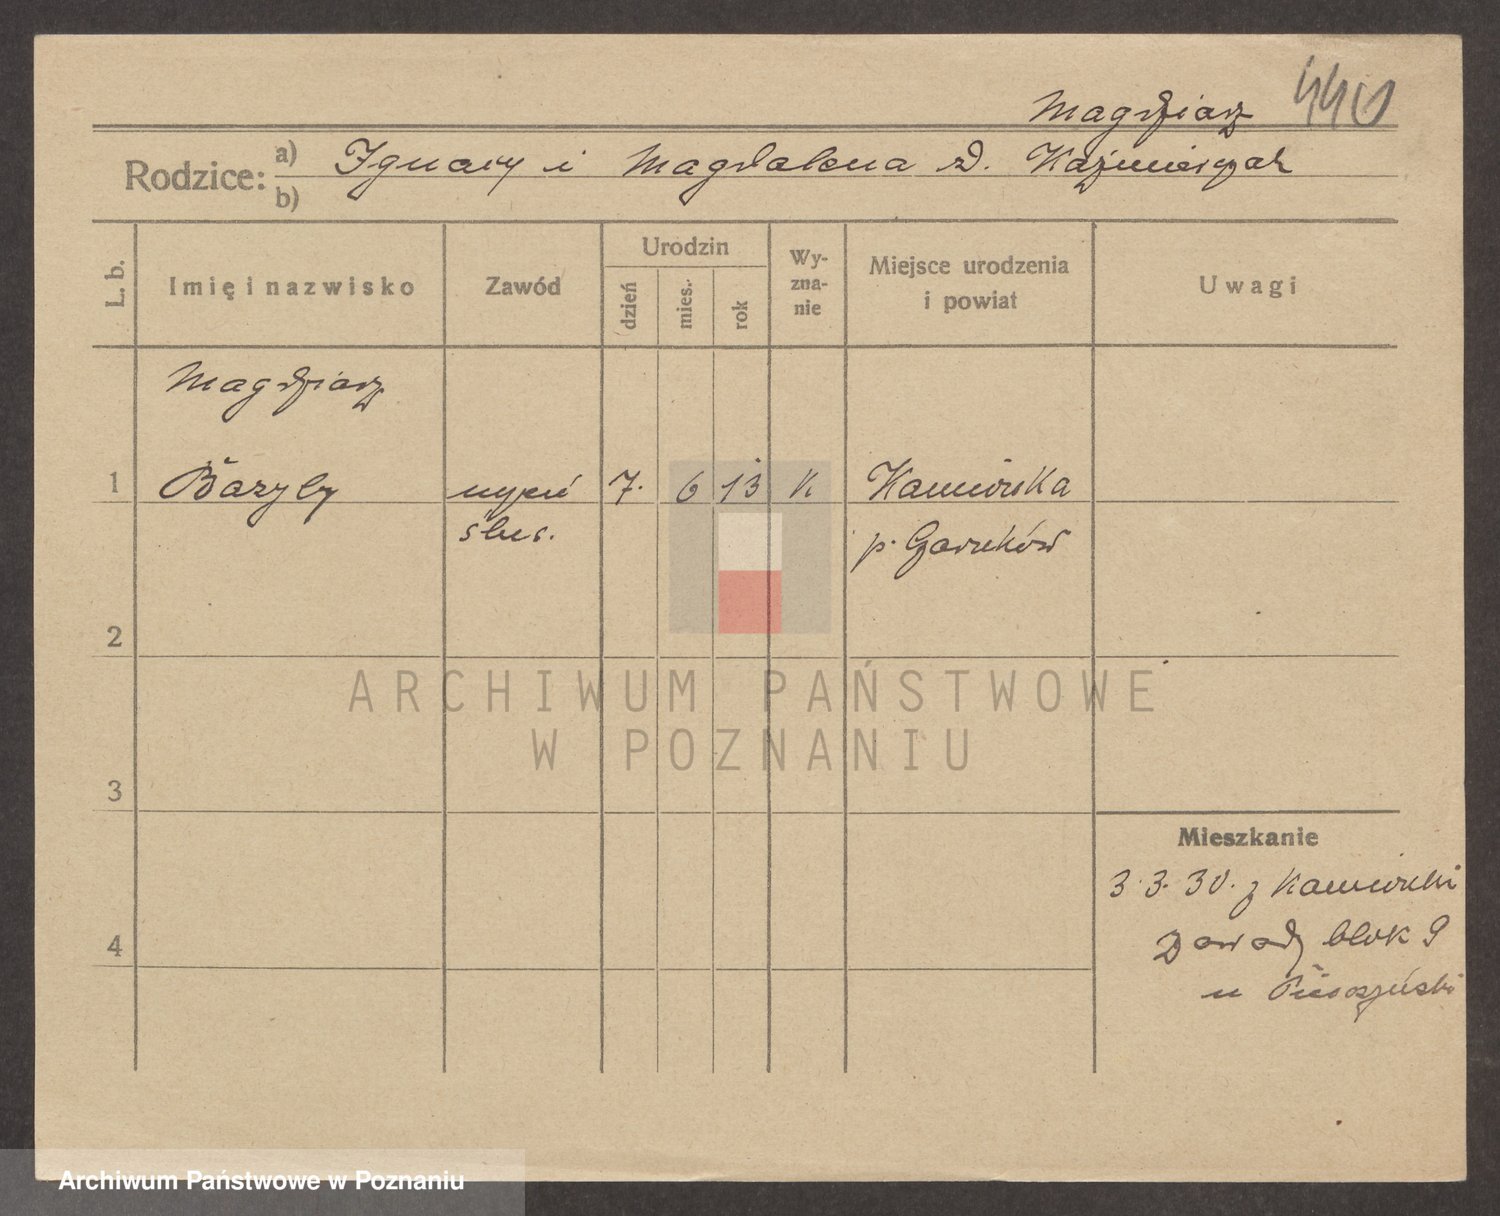 Magdziarz 440
Rodzice: a) Ignacy i Magdalena z d. Kaźmierczak
b)
L. b.
Imię i nazwisko
Zawód
Urodzin
dzień
mies.
rok
Wy-
zna-
nie
Miejsce urodzenia
i powiat
Uwagi
Magdziarz
1 Bazyly uczeń 7. 6 13 K Kamionka
ślus. p. Czarnków
2
3
4
Mieszkanie
3.3.30. z Kamionki
Zawady blok 9
u
ARCHIWUM PAŃSTWOWE
W POZNANIU
Archiwum Państwowe w Poznaniu